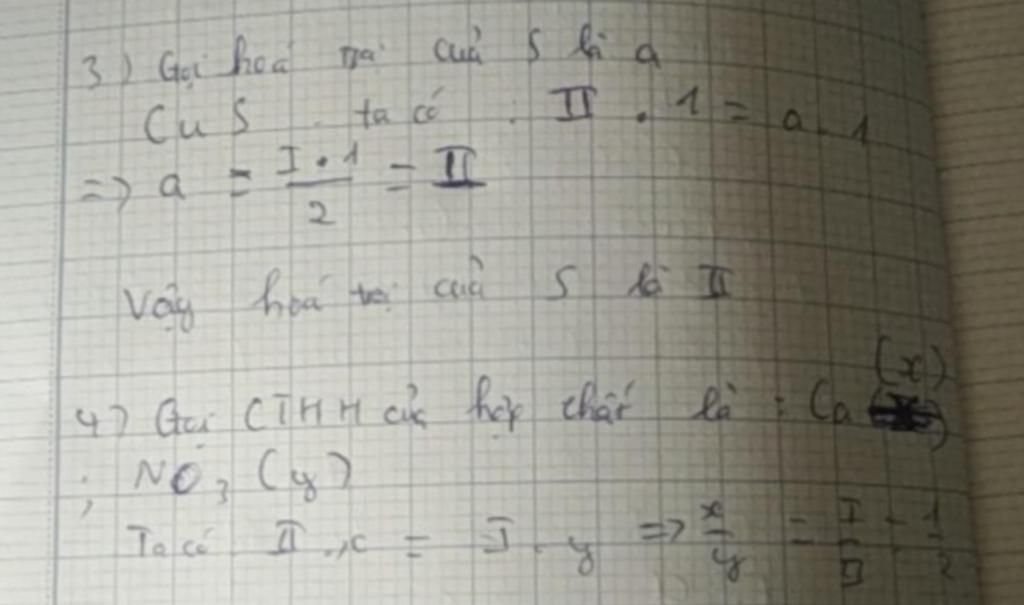 3) Gọi hoá trị của S là a
CuS ta có : II . 1 = a . 1
=> a = I . 1 / 2 = II
Vậy hoá trị của S là II
4) Gọi CTHH của hợp chất là : Ca (x)
; NO3 (y)
Ta có II . x = I . y => x/y = I/II = 1/2